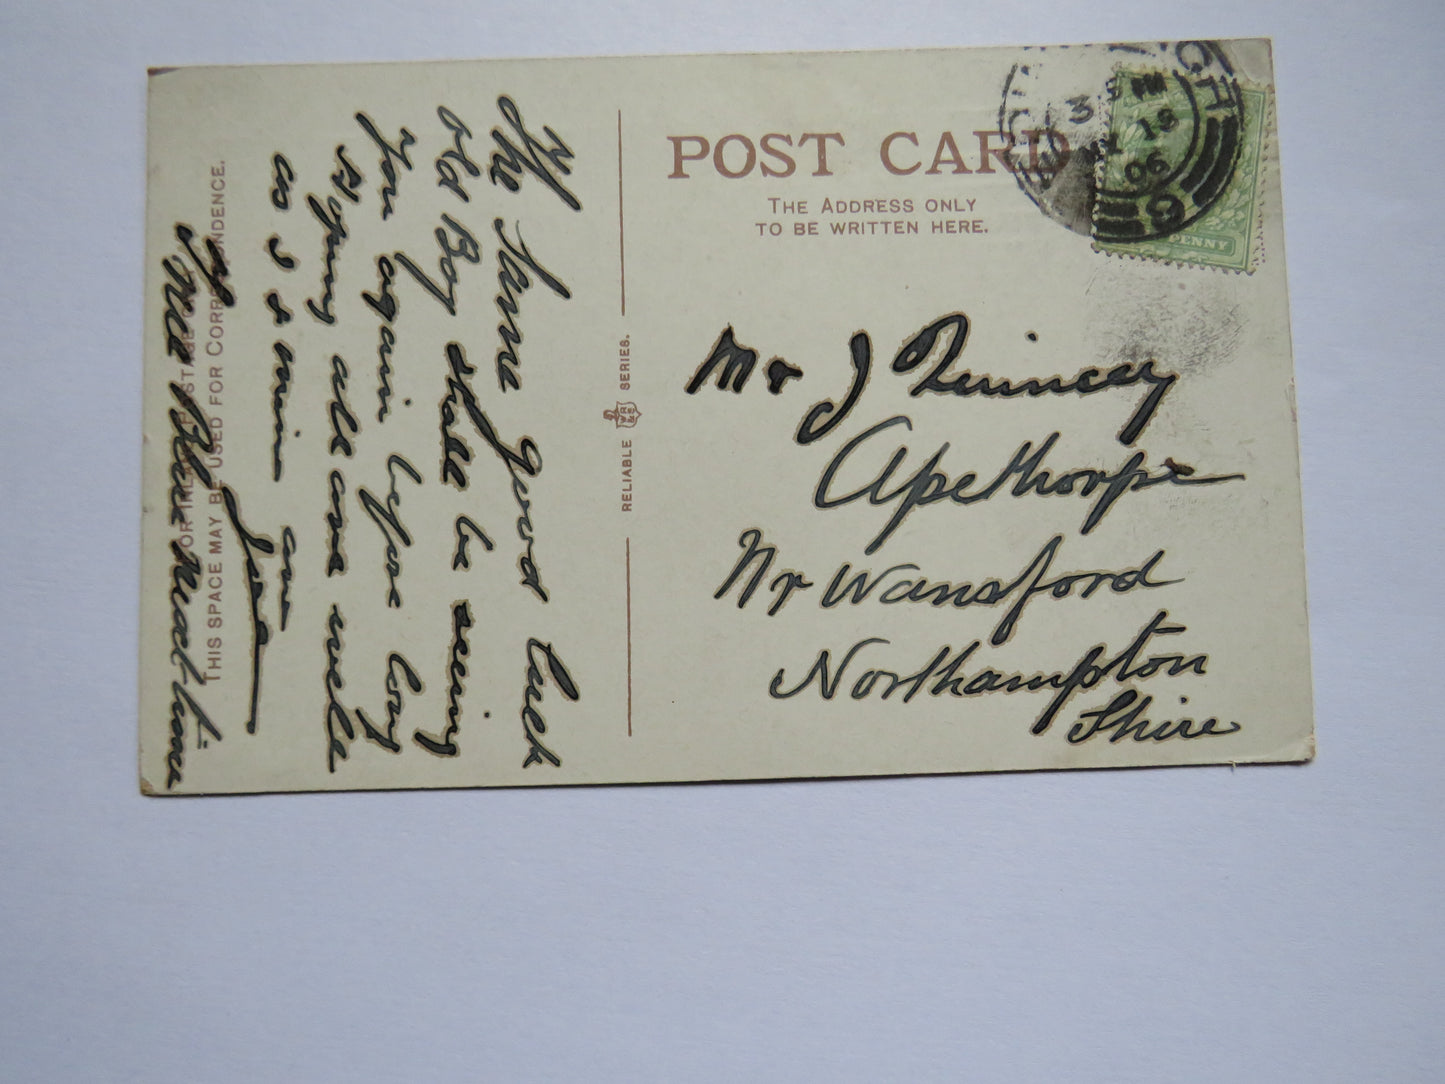 POST CARD
THE ADDRESS ONLY
TO BE WRITTEN HERE.
3 PM
18
06
PENNY
Mr J Quincey
Apethorpe
Nr Wansford
Northampton
Shire
RELIABLE WR&S SERIES.
FOR INLAND POSTAGE ONLY
THIS SPACE MAY BE USED FOR CORRESPONDENCE.
The Same good luck
old Boy shall be seeing
You again before long
Hoping all are well
as I & mine are